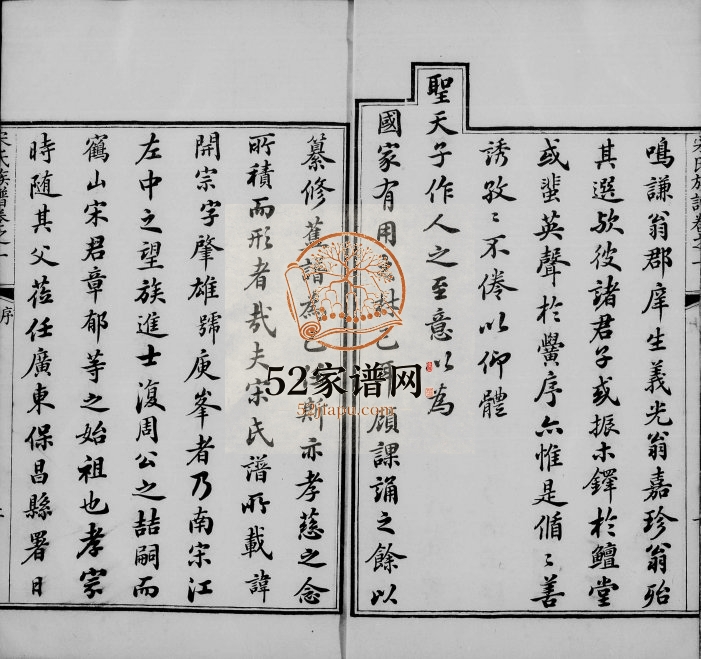 鳴謙翁郡庠生義光翁嘉珍翁殆
其選欤彼諸君子或振木鐸於鱣堂
或蜚英聲於黌序亦惟是循〻善
誘孜〻不倦以仰體
聖天子作人之至意以為
國家有用
已耳顧課誦之餘以
纂修舊譜為己
斯亦孝慈之念
所積而形者哉夫宋氏譜所載諱
開宗字肇雄號庾峯者乃南宋江
左中之望族進士復周公之喆嗣而
鶴山宋君章郁等之始祖也孝宗
時随其父莅任廣東保昌縣署日
宋氏族譜卷之一
序
52家谱网
52jiapu.com